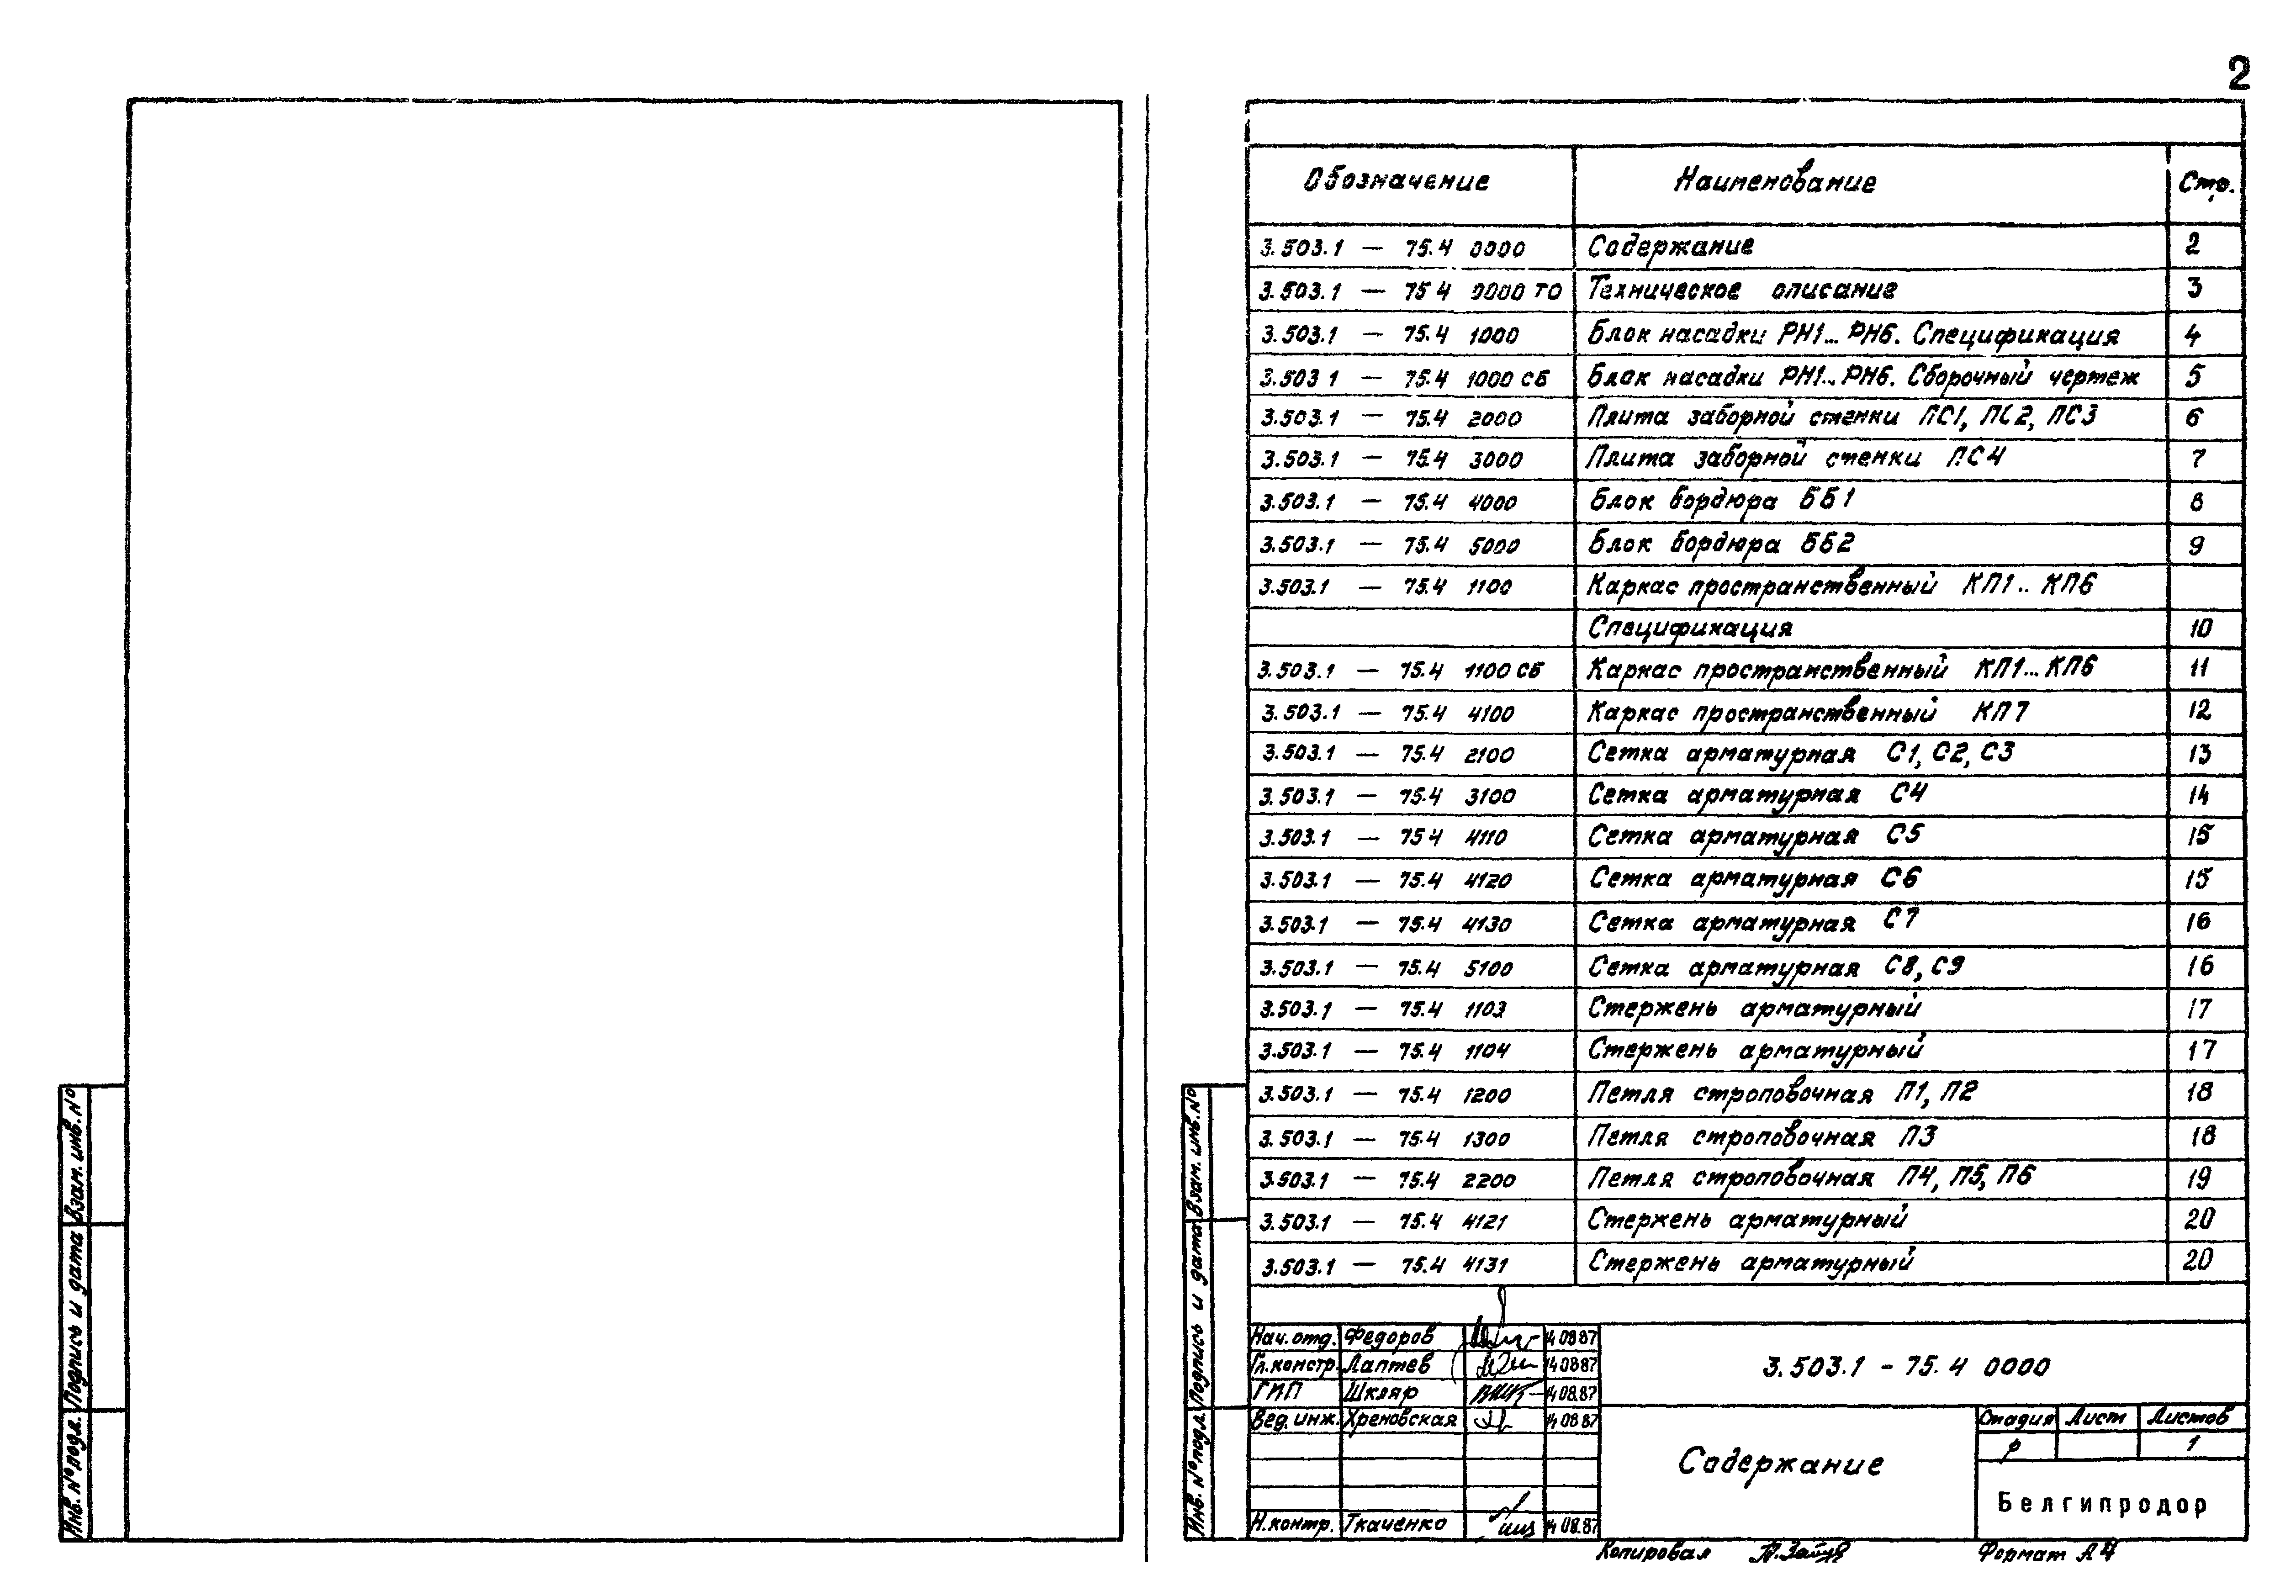 2
Обозначение Наименование Стр.
3.503.1 — 75.4 0000 Содержание 2
3.503.1 — 75 4 0000 ТО Техническое описание 3
3.503.1 — 75.4 1000 Блок насадки РН1... РН6. Спецификация 4
3.503 1 — 75.4 1000 СБ Блок насадки РН1... РН6. Сборочный чертеж 5
3.503.1 — 75.4 2000 Плита заборной стенки ПС1, ПС2, ПС3 6
3.503.1 — 75.4 3000 Плита заборной стенки ПС4 7
3.503.1 — 75.4 4000 Блок бордюра ББ1 8
3.503.1 — 75.4 5000 Блок бордюра ББ2 9
3.503.1 — 75.4 1100 Каркас пространственный КП1.. КП6
Спецификация 10
3.503.1 — 75.4 1100 СБ Каркас пространственный КП1... КП6 11
3.503.1 — 75.4 4100 Каркас пространственный КП7 12
3.503.1 — 75.4 2100 Сетка арматурная С1, С2, С3 13
3.503.1 — 75.4 3100 Сетка арматурная С4 14
3.503.1 — 75 4 4110 Сетка арматурная С5 15
3.503.1 — 75.4 4120 Сетка арматурная С6 15
3.503.1 — 75.4 4130 Сетка арматурная С7 16
3.503.1 — 75.4 5100 Сетка арматурная С8, С9 16
3.503.1 — 75.4 1103 Стержень арматурный 17
3.503.1 — 75.4 1104 Стержень арматурный 17
3.503.1 — 75.4 1200 Петля строповочная П1, П2 18
3.503.1 — 75.4 1300 Петля строповочная П3 18
3.503.1 — 75.4 2200 Петля строповочная П4, П5, П6 19
3.503.1 — 75.4 4121 Стержень арматурный 20
3.503.1 — 75.4 4131 Стержень арматурный 20
Нач. отд. Федоров 14 08 87
Гл. констр. Лаптев 14 08 87
ГИП Шкляр 14 08.87
Вед. инж. Хреновская 14 08 87
Н. контр. Ткаченко 14 08.87
3.503.1 - 75.4 0000
Содержание
Стадия Лист Листов
Р 1
Белгипродор
Копировал
Формат А4
Инв. № подл. Подпись и дата Взам. инв. №
Инв. № подл. Подпись и дата Взам. инв. №